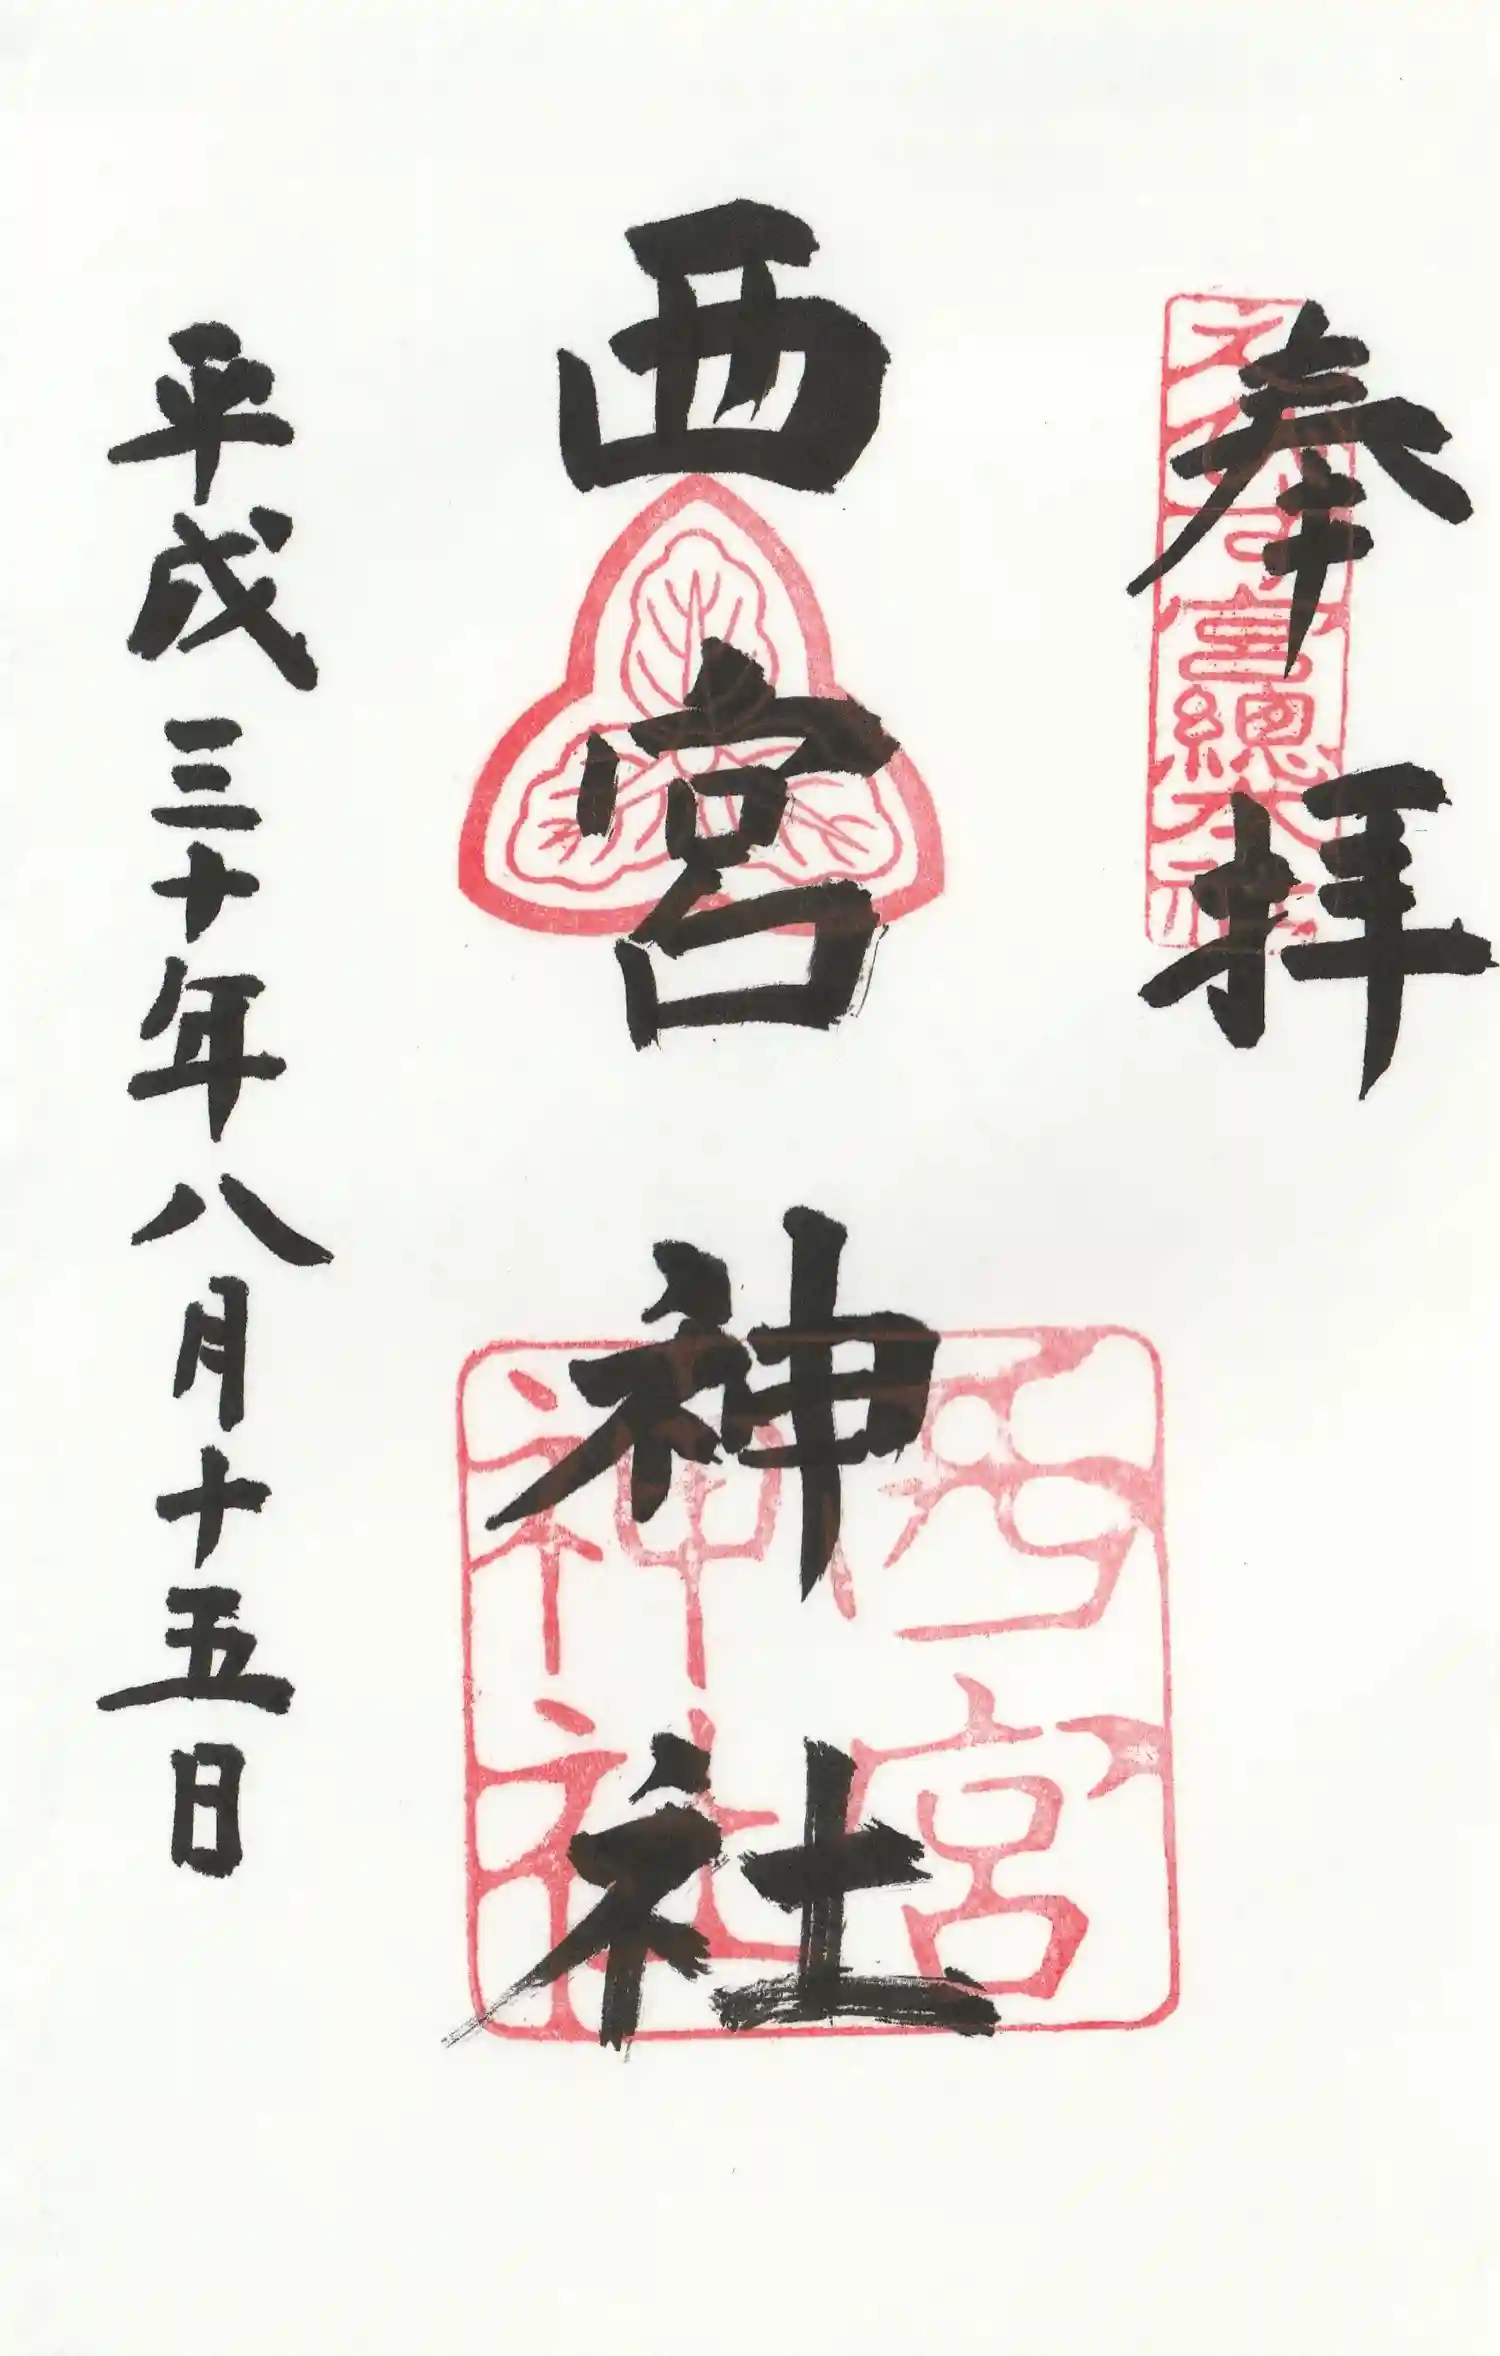 奉拝
えびす宮総本社
西宮神社
西宮
神社
平成三十年八月十五日